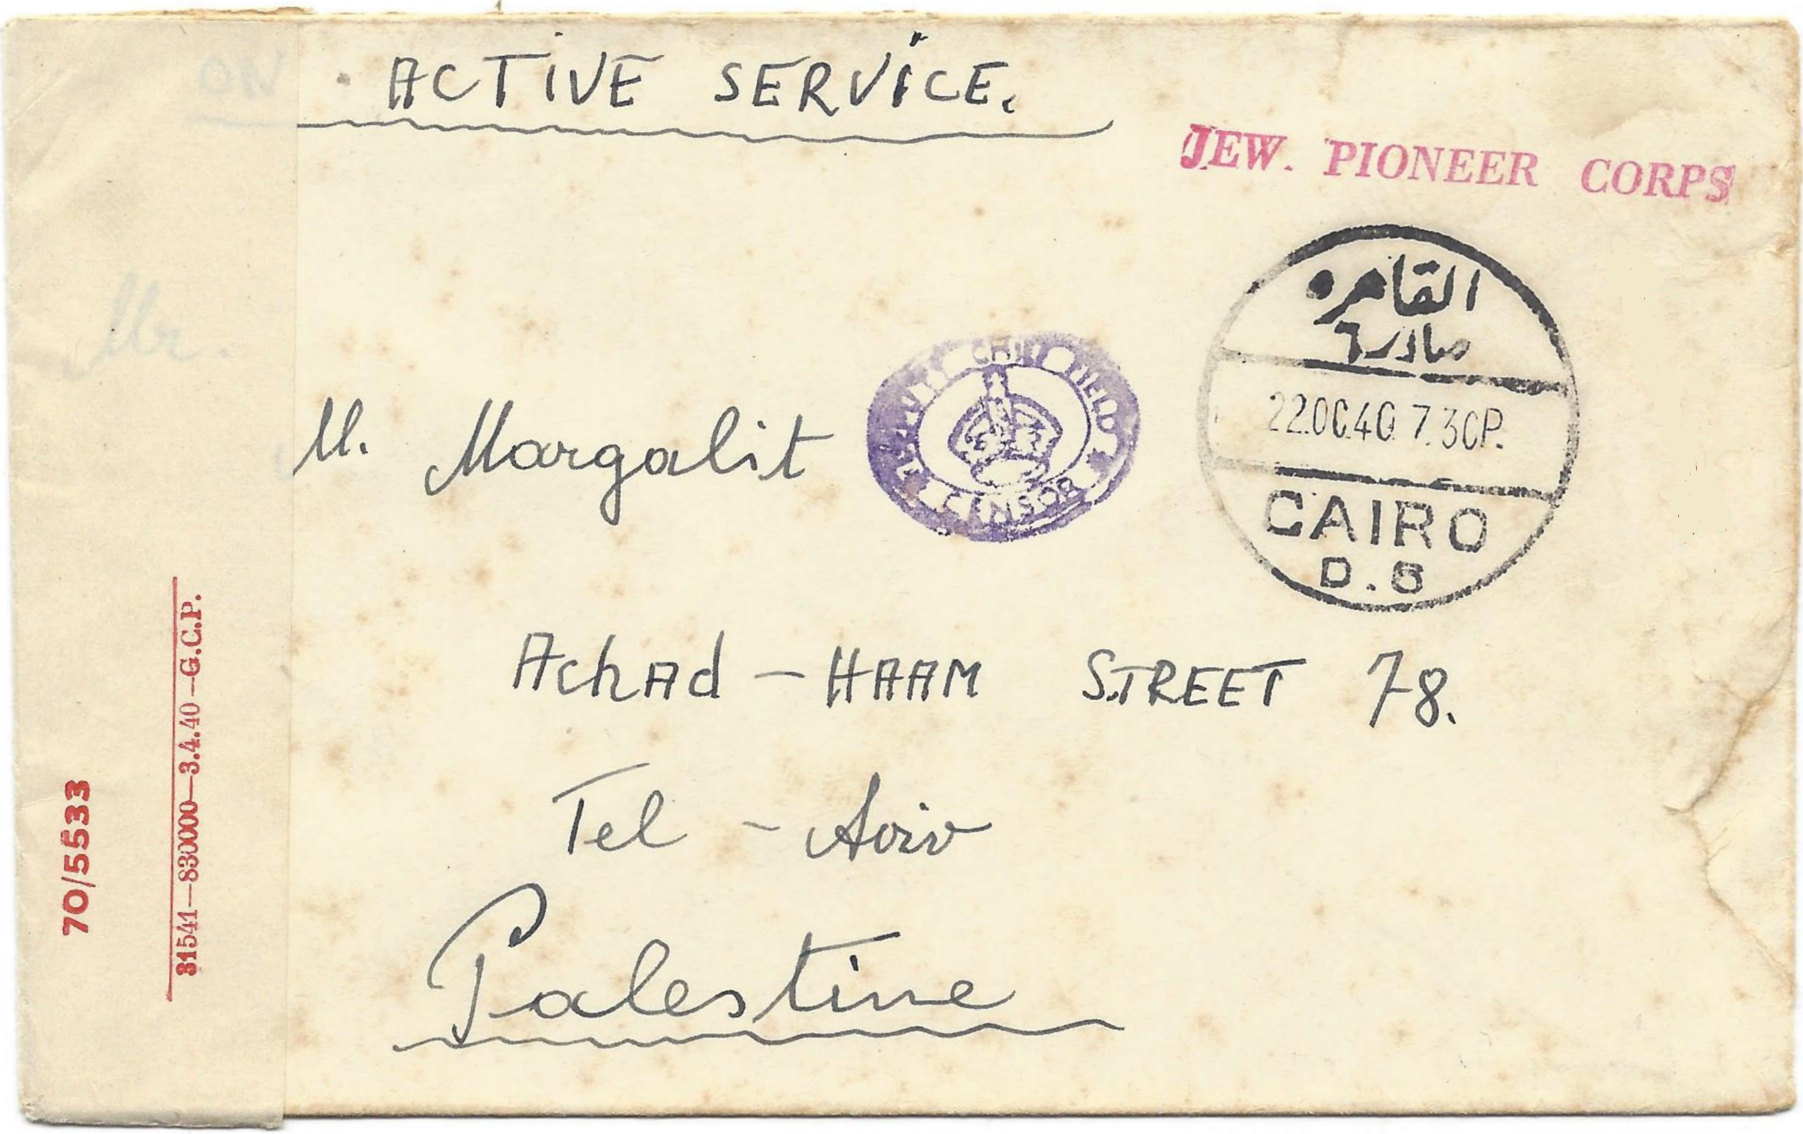 ON ACTIVE SERVICE.
JEW. PIONEER CORPS
القاهره
صادرة
22.OC.40. 7.30P.
CAIRO
D.6
CENSOR
Mr.
M. Margalit
Achad - HAAM STREET 78.
Tel - Aviv
Palestine
70/5533
31541—830000—3.4.40—G.C.P.